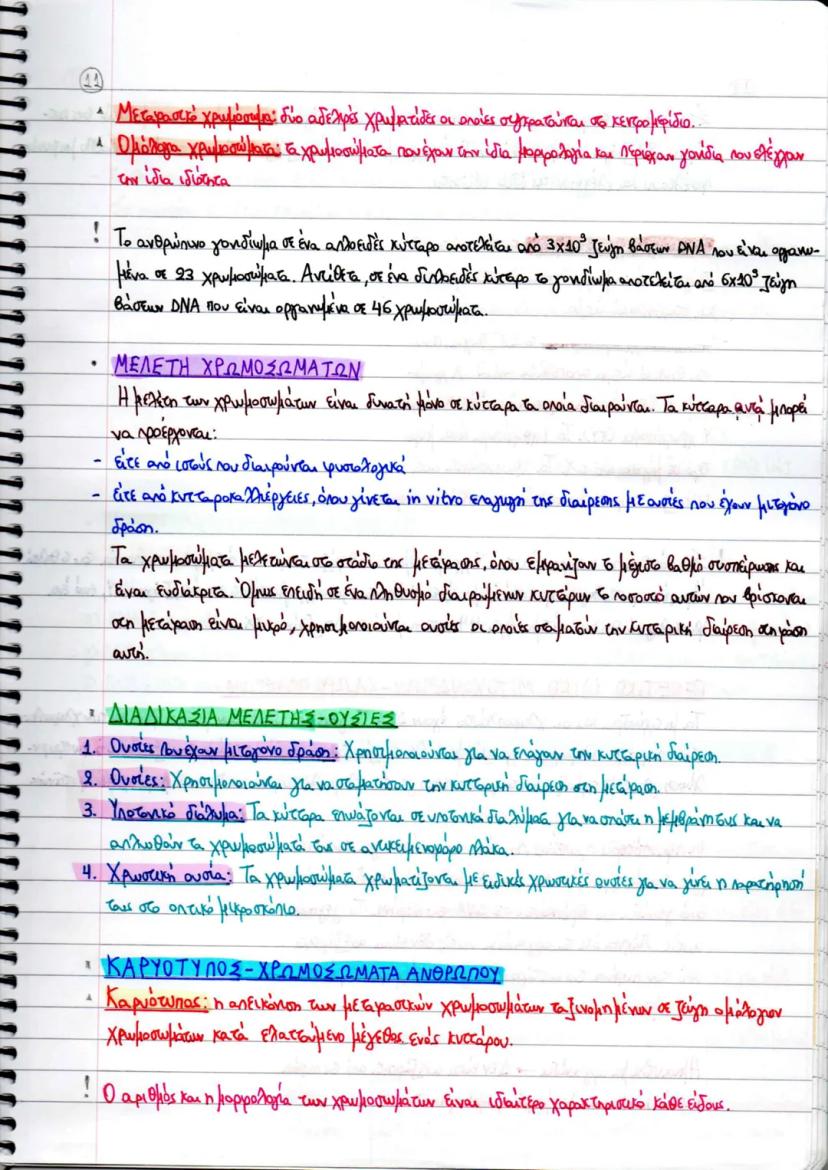 11
Μεταφασικό χρωμόσωμα: δύο αδελφές χρωματίδες οι οποίες συγκρατούνται στο κεντρομερίδιο.
Ομόλογα χρωμοσώματα: τα χρωμοσώματα που έχουν την ίδια μορφολογία και περιέχουν γονίδια που ελέγχουν
την ίδια ιδιότητα
! Το ανθρώπινο γονιδίωμα σε ένα απλοειδές κύτταρο αποτελείται από 3x10⁹ ζεύγη βάσεων DNA που είναι οργανω-
μένα σε 23 χρωμοσώματα. Αντίθετα, σε ένα διπλοειδές κύτταρο το γονιδίωμα αποτελείται από 6x10⁹ ζεύγη
βάσεων DNA που είναι οργανωμένα σε 46 χρωμοσώματα.
• ΜΕΛΕΤΗ ΧΡΩΜΟΣΩΜΑΤΩΝ
Η μελέτη των χρωμοσωμάτων είναι δυνατή μόνο σε κύτταρα τα οποία διαιρούνται. Τα κύτταρα αυτά μπορεί
να προέρχονται:
- είτε από ιστούς που διαιρούνται φυσιολογικά
- είτε από κυτταροκαλλιέργειες, όπου γίνεται in vitro επαγωγή της διαίρεσης με ουσίες που έχουν μιτογόνο
δράση.
Τα χρωμοσώματα μελετώνται στο στάδιο της μετάφασης, όπου εμφανίζουν το μέγιστο βαθμό συσπείρωσης και
είναι ευδιάκριτα. Όμως επειδή σε ένα πληθυσμό διαιρούμενων κυττάρων το ποσοστό αυτών που βρίσκονται
στη μετάφαση είναι μικρό, χρησιμοποιούνται ουσίες οι οποίες σταματούν την κυτταρική διαίρεση στη φάση
αυτή.
• ΔΙΑΔΙΚΑΣΙΑ ΜΕΛΕΤΗΣ-ΟΥΣΙΕΣ
1. Ουσίες που έχουν μιτογόνο δράση: Χρησιμοποιούνται για να επάγουν την κυτταρική διαίρεση.
2. Ουσίες: Χρησιμοποιούνται για να σταματήσουν την κυτταρική διαίρεση στη μετάφαση.
3. Υποτονικό διάλυμα: Τα κύτταρα επωάζονται σε υποτονικά διαλύματα για να σπάσει η μεμβράνη τους και να
απλωθούν τα χρωμοσώματά τους σε αντικειμενοφόρο πλάκα.
4. Χρωστική ουσία: Τα χρωμοσώματα χρωματίζονται με ειδικές χρωστικές ουσίες για να γίνει η παρατήρησή
τους στο οπτικό μικροσκόπιο.
• ΚΑΡΥΟΤΥΠΟΣ-ΧΡΩΜΟΣΩΜΑΤΑ ΑΝΘΡΩΠΟΥ
Καρυότυπος: η απεικόνιση των μεταφασικών χρωμοσωμάτων ταξινομημένων σε ζεύγη ομόλογων
χρωμοσωμάτων κατά ελαττούμενο μέγεθος ενός κυττάρου.
! Ο αριθμός και η μορφολογία των χρωμοσωμάτων είναι ιδιαίτερο χαρακτηριστικό κάθε είδους.